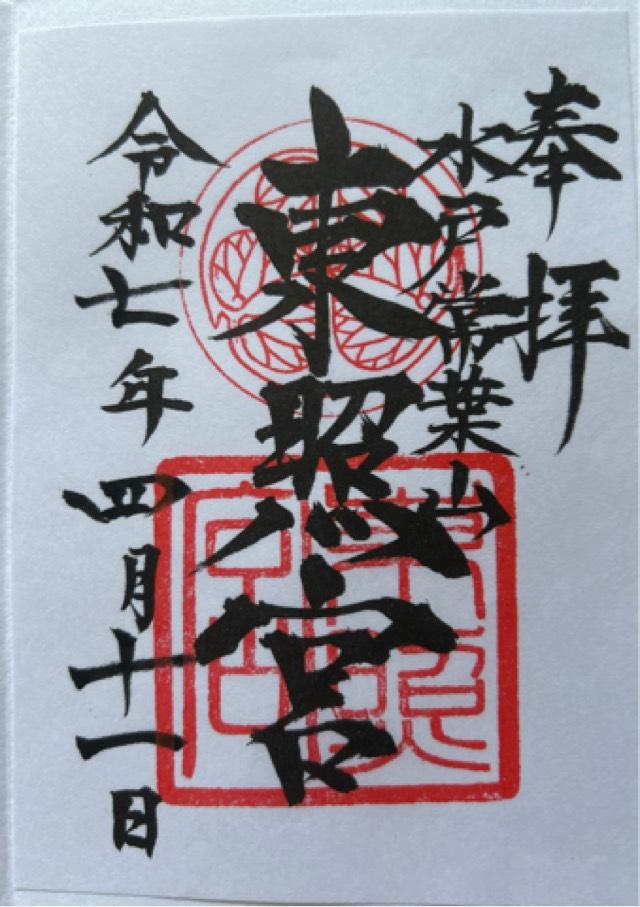 奉拝
水戸常葉山
東照宮
令和七年四月十一日
東照宮